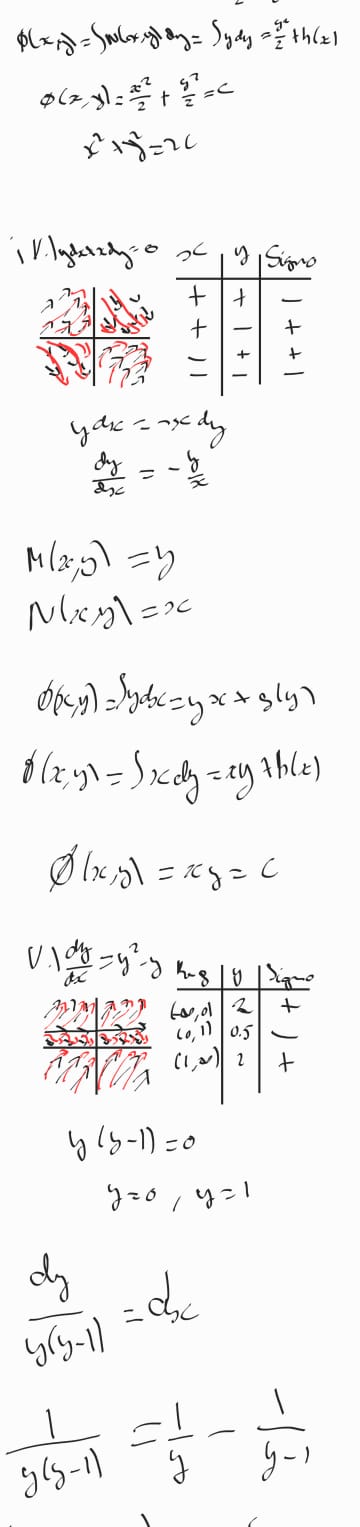 ϕ(x,y)=∫N(x,y)dy=∫ydy=y²/2+h(x)
ϕ(x,y)=x²/2+y²/2=c
x²+y²=2c
iV.)ydx+xdy=0
x | y | Signo
+ | + | −
+ | − | +
− | + | +
− | − | −
ydx=−xdy
dy/dx=−y/x
M(x,y)=y
N(x,y)=x
ϕ(x,y)=∫ydx=yx+g(y)
ϕ(x,y)=∫xdy=xy+h(x)
ϕ(x,y)=xy=c
V.)dy/dx=y²-y
y | Signo
(-∞,0) | 2 | +
(0,1) | 0.5 | −
(1,∞) | 2 | +
y(y-1)=0
y=0, y=1
dy/y(y-1)=dx
1/y(y-1)=1/y−1/y-1